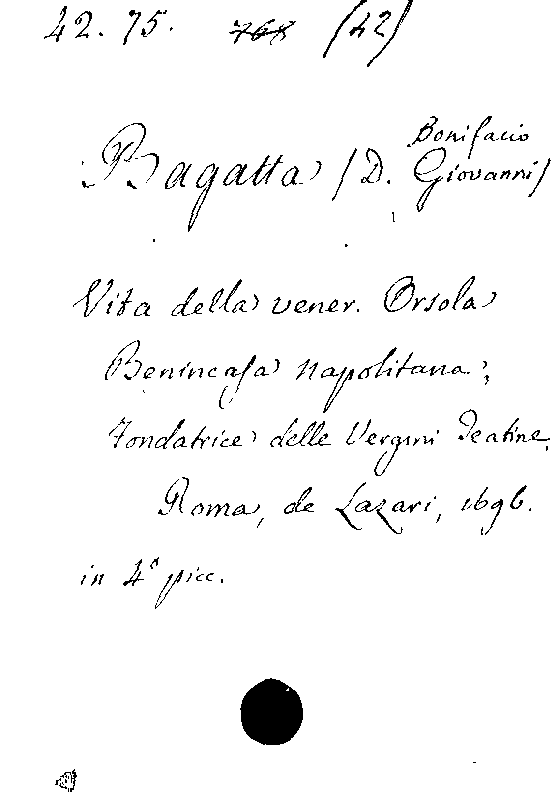 42. 75. 768 (42)
Bonifacio
Bagatta (D. Giovanni)
Vita della vener. Orsola
Benincasa napolitana,
Fondatrice delle Vergini Teatine.
Roma, de Lazari, 1696.
in 4° picc.